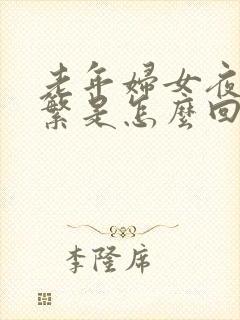 老年婦女夜
繁是怎麼回
李隆席